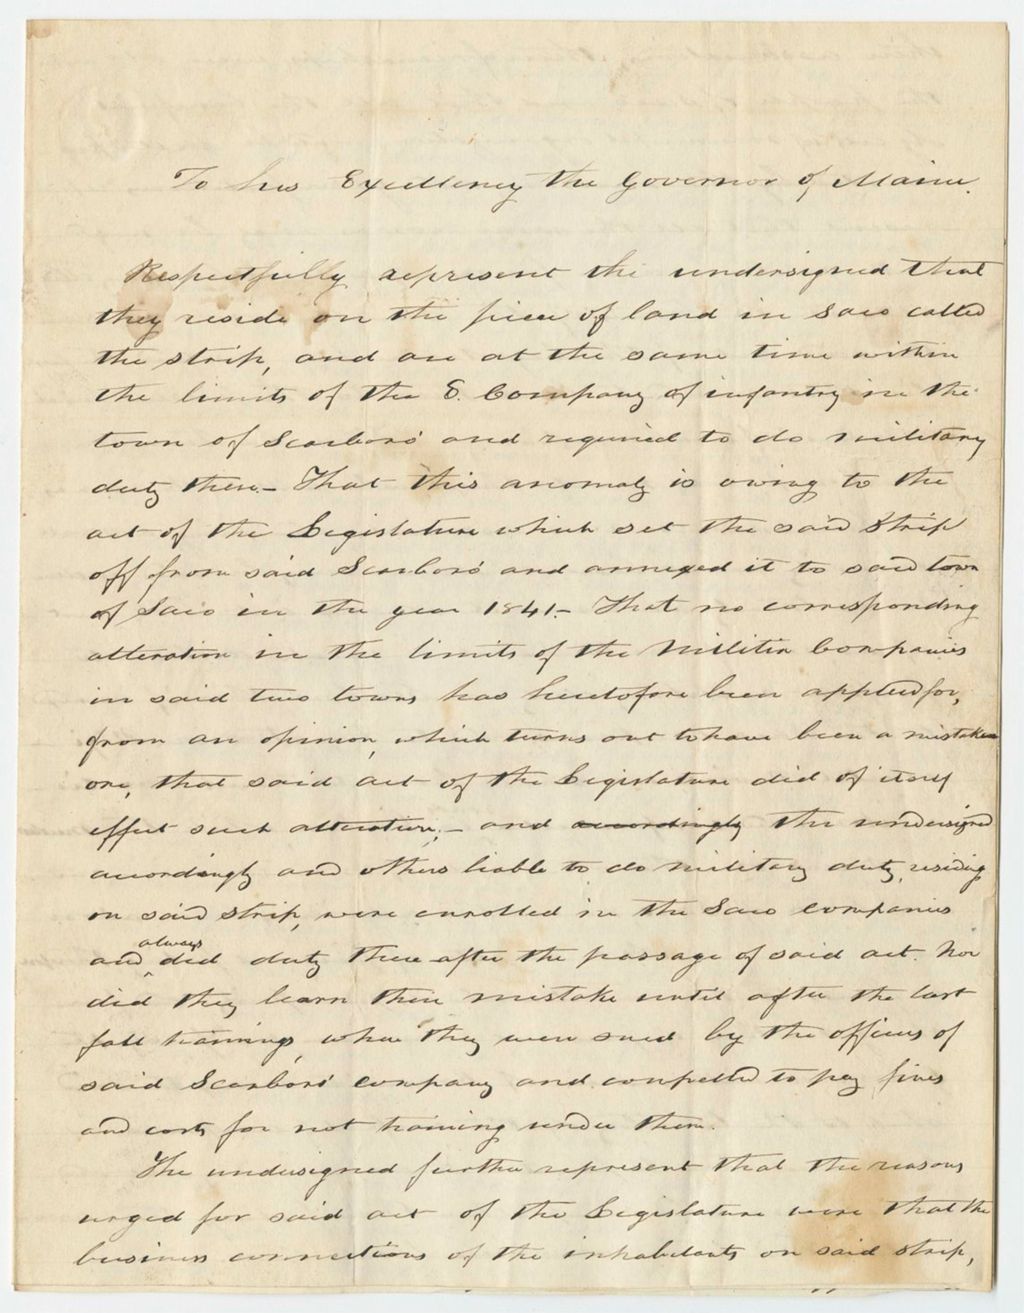 To his Excellency the Governor of Maine.
Respectfully represent the undersigned that
they reside on the piece of land in Saco called
the strip, and are at the same time within
the limits of the E. Company of infantry in the
town of Scarboro' and required to do military
duty there.- That this anomaly is owing to the
act of the Legislature which set the said strip
off from said Scarboro' and annexed it to said town
of Saco in the year 1841.- That no corresponding
alteration in the limits of the Militia Companies
in said two towns has heretofore been applied for,
from an opinion, which turns out to have been a mistaken
one, that said act of the Legislature did of itself
effect such alteration;- and accordingly the undersigned
accordingly and others liable to do military duty, residing
on said strip, were enrolled in the Saco companies
and always did duty there after the passage of said act. Nor
did they learn their mistake until after the last
fall trainings, when they were sued by the officers of
said Scarboro' company and compelled to pay fines
and costs for not training under them.
The undersigned further represent that the reasons
urged for said act of the Legislature were that the
business connections of the inhabitants on said strip,